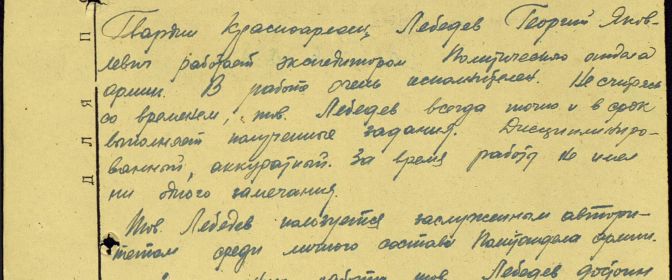 П
Д Л Я
Гвардии Красноармеец Лебедев Георгий Яков-
левич работает экспедитором Политического отдела
армии. В работе очень исполнителен. Не считаясь
со временем, тов. Лебедев всегда точно и в срок
выполняет полученные задания. Дисциплиниро-
ванной, аккуратной. За время работы не имел
ни одного замечания.
Тов. Лебедев пользуется заслуженным автори-
тетом среди личного состава Политотдела армии.
работу тов. Лебедев достоин